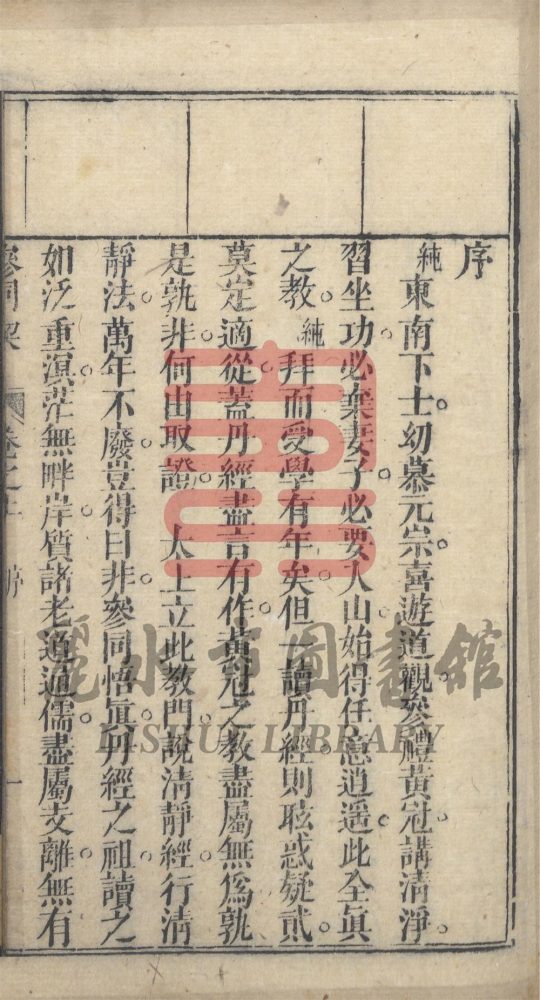 序
純東南下士幼慕元宗喜遊道觀參禮黃冠講清淨
習坐功必棄妻子必要入山始得任意逍遥此全眞
之教純拜而受學有年矣但一讀丹經則眩惑疑貳
莫定適從蓋丹經盡言有作黃冠之教盡屬無爲孰
是孰非何由取證太上立此教門說清靜經行清
靜法萬年不廢豈得曰非參同悟眞丹經之祖讀之
如泛重溟茫無畔岸質諸老道通儒盡屬支離無有
參同契 卷之上 序 一
麗水市圖書館
LISHUI LIBRARY